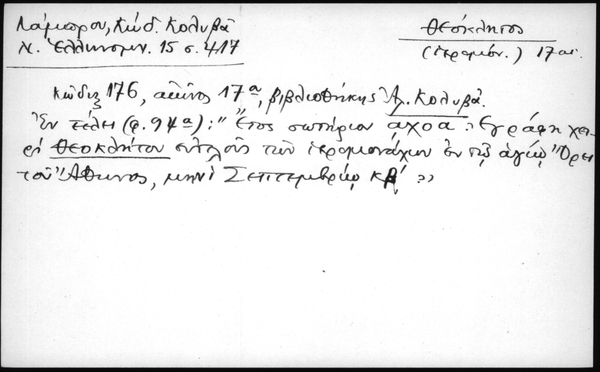 Λάμπρου, Κώδ. Κολυβᾶ
Ν. Ἑλληνομν. 15 σ. 417
Θεόκλητος
(ἱερομόν.) 17 αἰ.
Κῶδιξ 176, αἰῶνος 17ᵃ, βιβλιοθήκης Ἀλ. Κολυβᾶ.
Ἐν τέλει (φ. 94α): "Ἔτος σωτήριον ͵αχοα: Ἐγράφη χει
ρὶ Θεοκλήτου εὐτελοῦς τῶν ἱερομονάχων ἐν τῷ ἁγίῳ Ὄρει
τοῦ Ἄθωνος, μηνὶ Σεπτεμβρίῳ κβ́ "